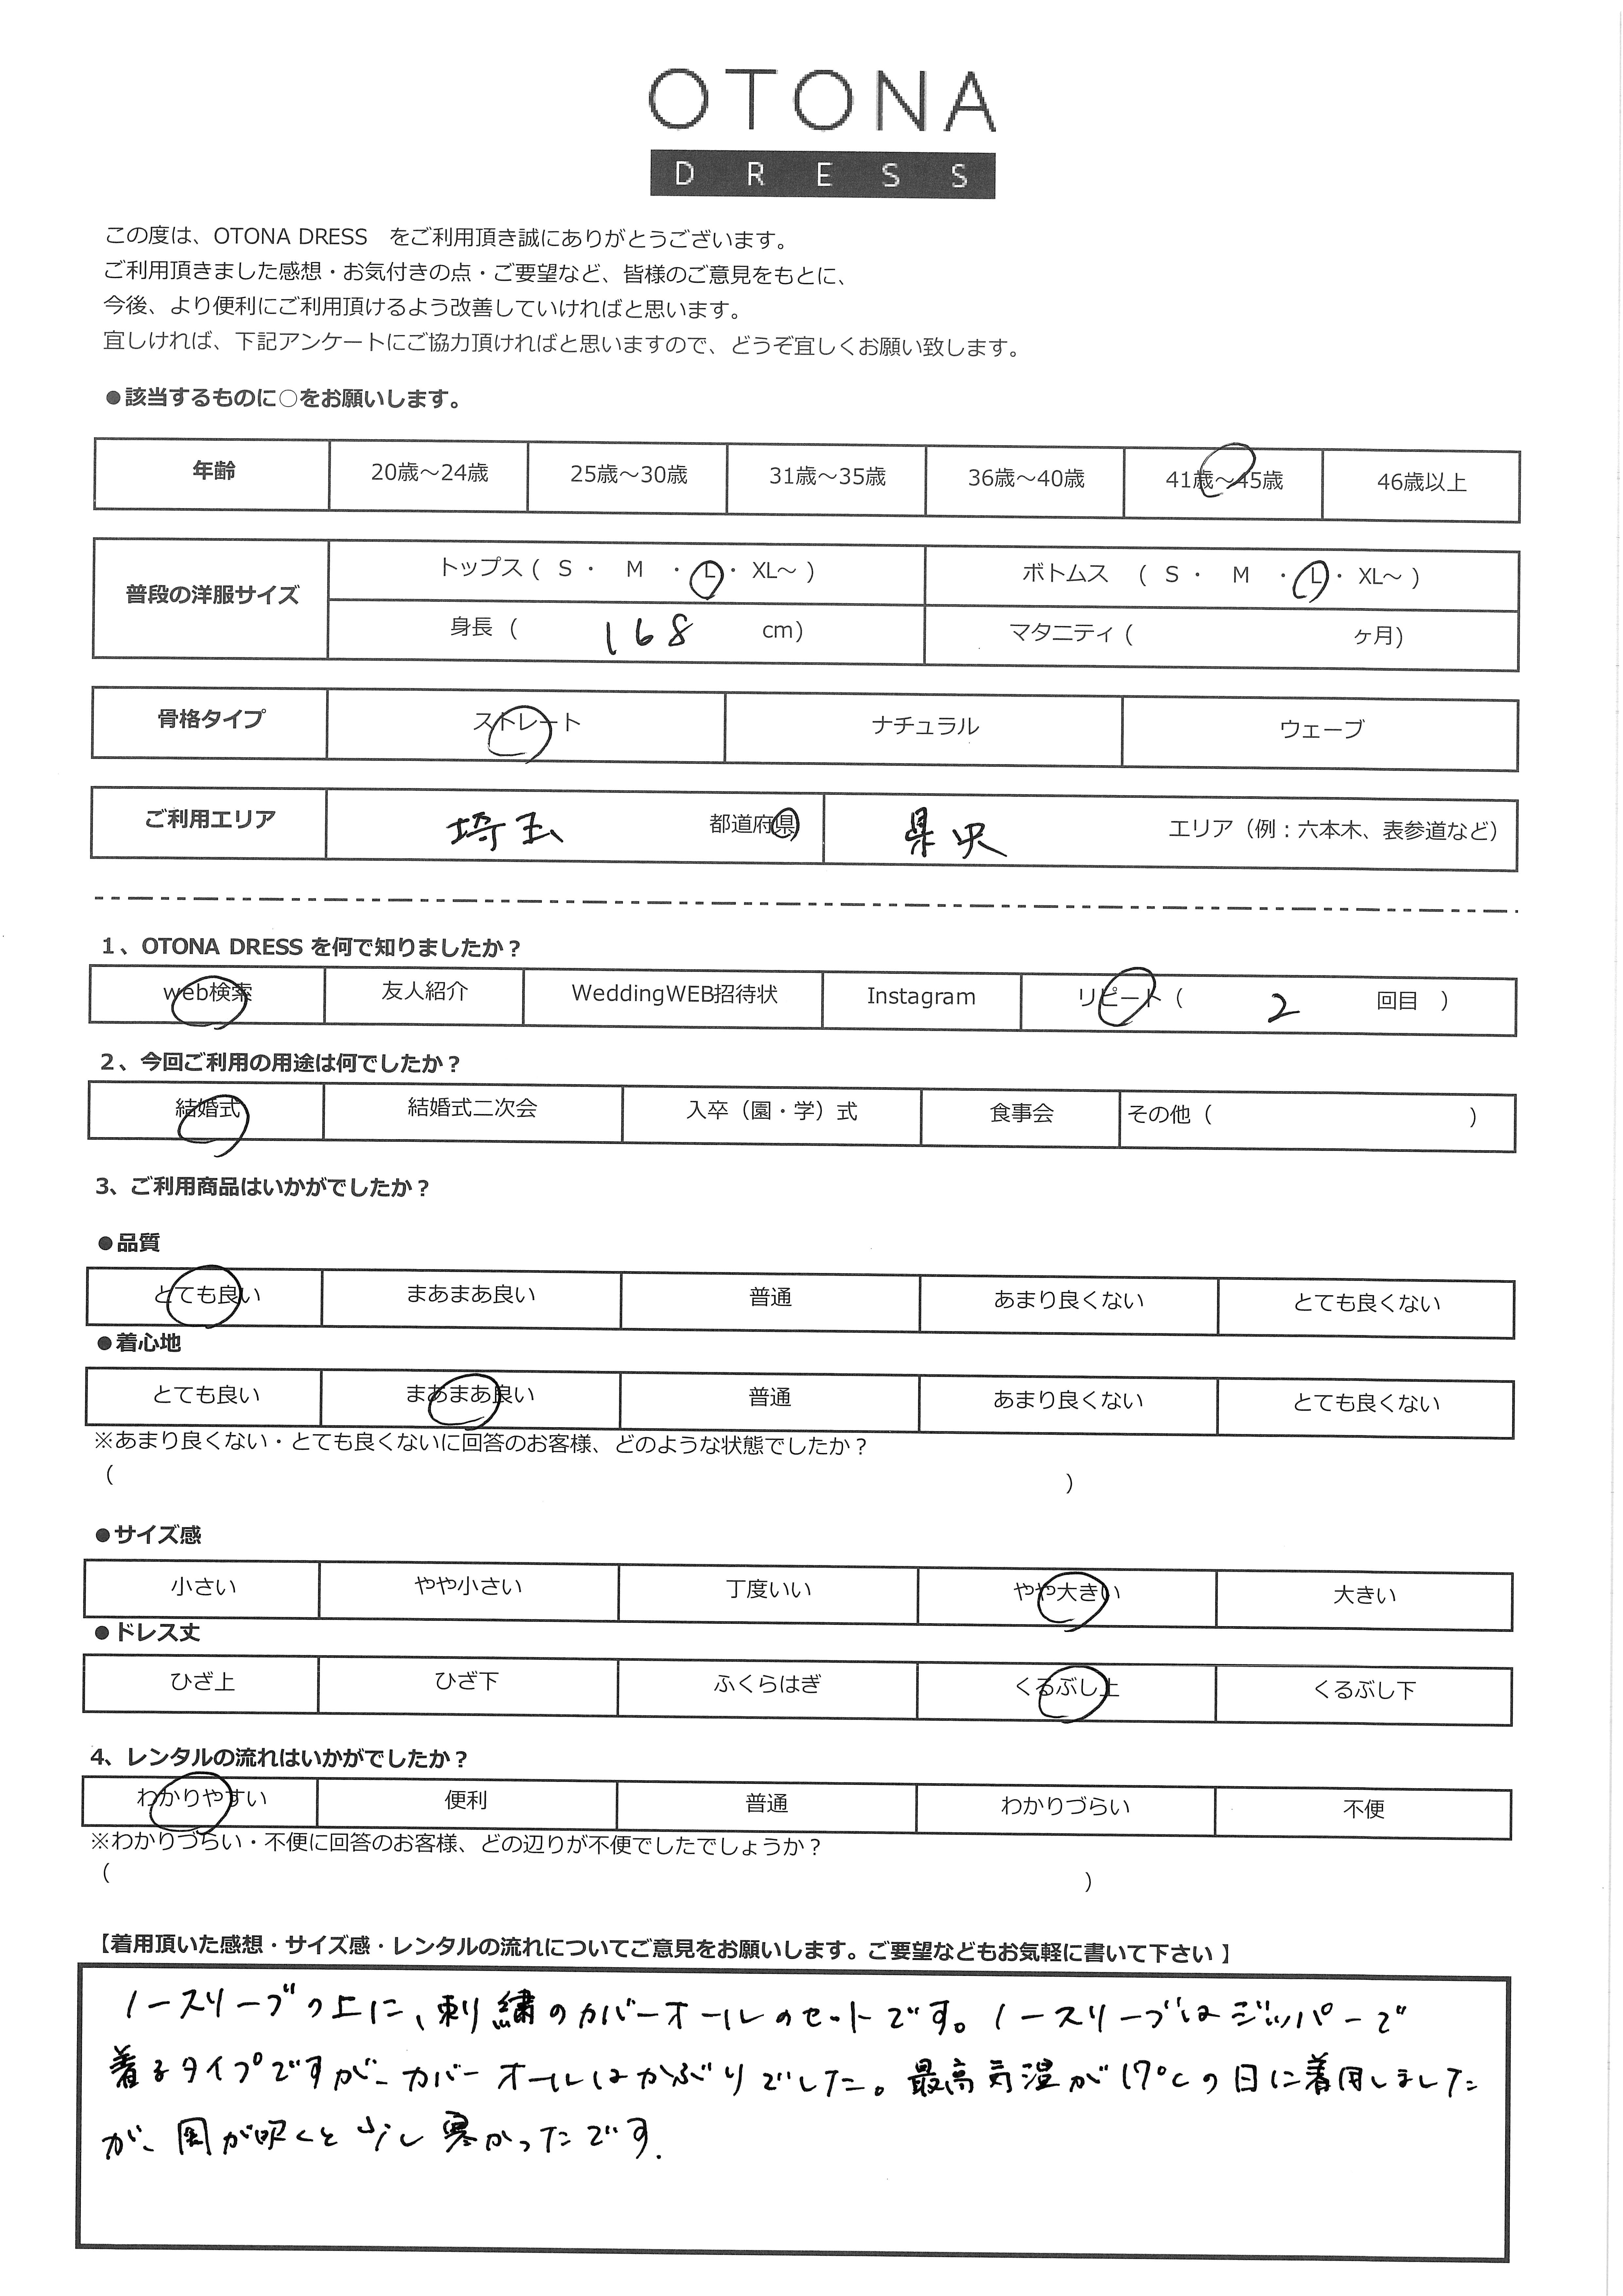 OTONA
DRESS
この度は、OTONA DRESS　をご利用頂き誠にありがとうございます。
ご利用頂きました感想・お気付きの点・ご要望など、皆様のご意見をもとに、
今後、より便利にご利用頂けるよう改善していければと思います。
宜しければ、下記アンケートにご協力頂ければと思いますので、どうぞ宜しくお願い致します。
●該当するものに○をお願いします。
年齢 20歳～24歳 25歳～30歳 31歳～35歳 36歳～40歳 41歳～45歳 46歳以上
普段の洋服サイズ
トップス ( S ・ M ・ L ・ XL～ ) ボトムス ( S ・ M ・ L ・ XL～ )
身長 ( 168 cm) マタニティ ( ヶ月)
骨格タイプ ストレート ナチュラル ウェーブ
ご利用エリア 埼玉 都道府県 県央 エリア（例：六本木、表参道など）
1、OTONA DRESS を何で知りましたか？
web検索 友人紹介 WeddingWEB招待状 Instagram リピート ( 2 回目 )
2、今回ご利用の用途は何でしたか？
結婚式 結婚式二次会 入卒（園・学）式 食事会 その他 ( )
3、ご利用商品はいかがでしたか？
●品質
とても良い まあまあ良い 普通 あまり良くない とても良くない
●着心地
とても良い まあまあ良い 普通 あまり良くない とても良くない
※あまり良くない・とても良くないに回答のお客様、どのような状態でしたか？
( )
●サイズ感
小さい やや小さい 丁度いい やや大きい 大きい
●ドレス丈
ひざ上 ひざ下 ふくらはぎ くるぶし上 くるぶし下
4、レンタルの流れはいかがでしたか？
わかりやすい 便利 普通 わかりづらい 不便
※わかりづらい・不便に回答のお客様、どの辺りが不便でしたでしょうか？
( )
【着用頂いた感想・サイズ感・レンタルの流れについてご意見をお願いします。ご要望などもお気軽に書いて下さい 】
ノースリーブの上に、刺繍のカバーオールのセットです。ノースリーブはジッパーで
着るタイプですが、カバーオールはかぶりでした。最高気温が17℃の日に着用しました
が、風が吹くと少し寒かったです.